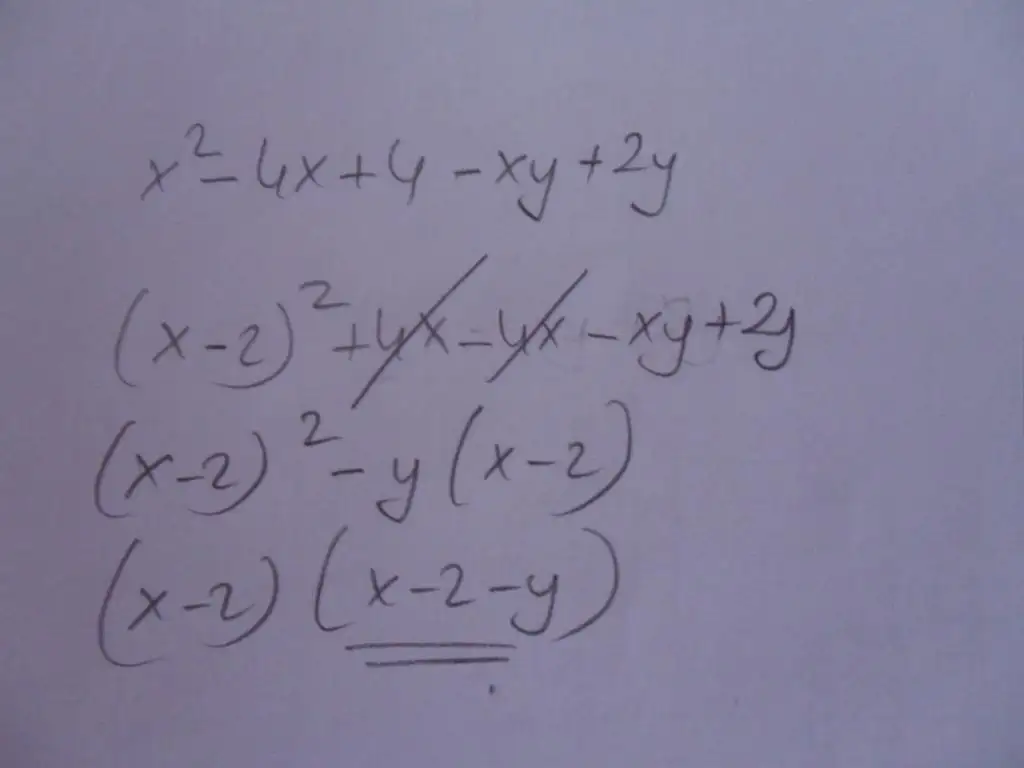 x² - 4x + 4 - xy + 2y
(x - 2)² + 4x - 4x - xy + 2y
(x - 2)² - y (x - 2)
(x - 2) (x - 2 - y)